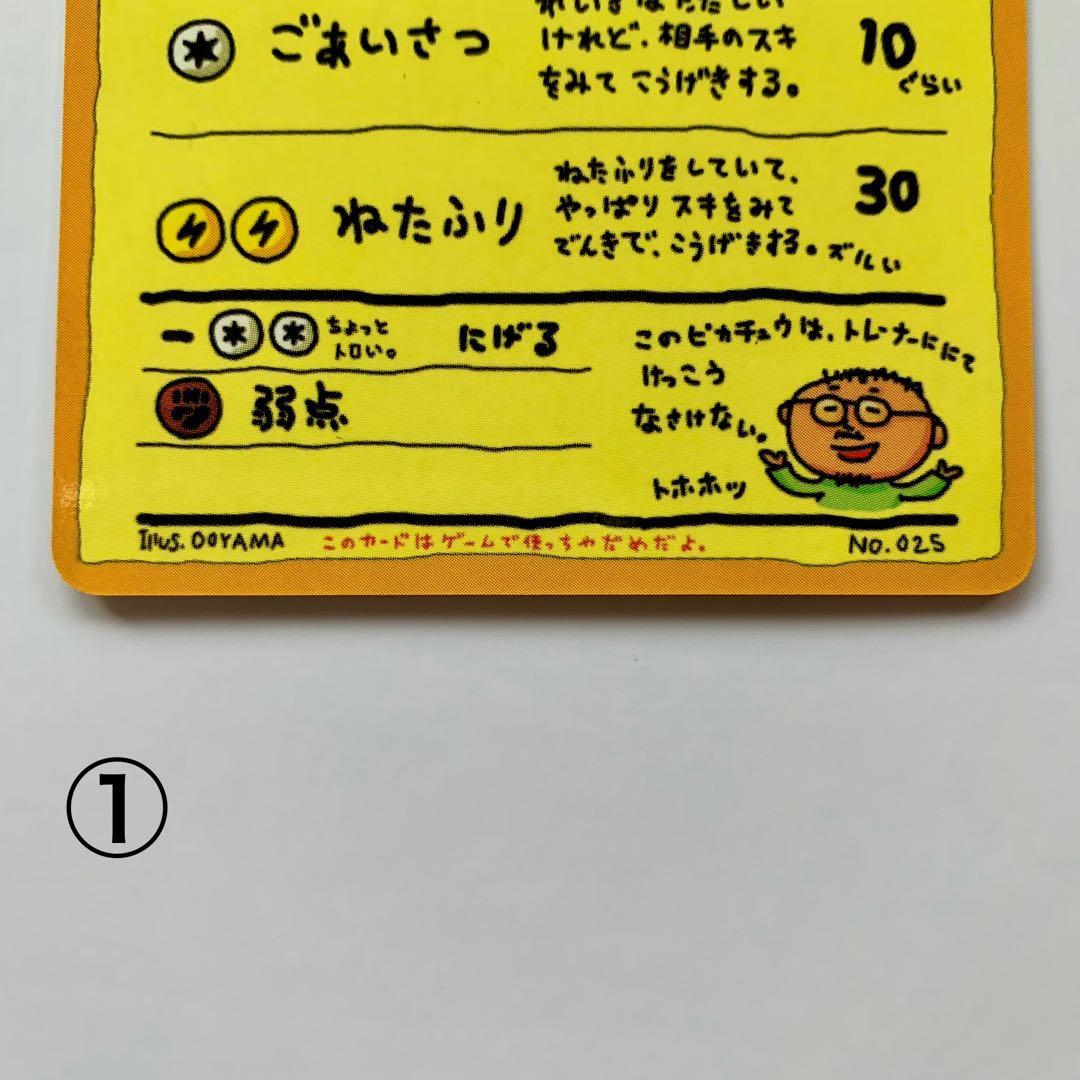 ごあいさつ
けれど、相手のスキ
をみて こうげきする。
10
ぐらい
ねたふり
ねたふりをしていて、
やっぱり スキをみて
でんきで、こうげきする。ズルい
30
ー
ちょっと
トロい。
にげる
弱点
このピカチュウは、トレーナーににて
けっこう
なさけない。
トホホッ
Illus. OOYAMA
このカードはゲームで使っちゃだめだよ。
NO. 025
①